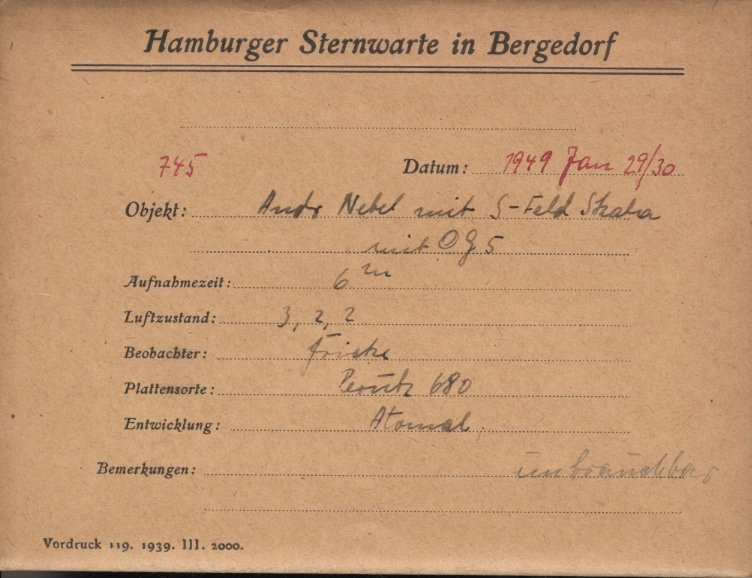 Hamburger Sternwarte in Bergedorf
745 Datum: 1949 Jan 29/30
Objekt: Andr Nebel mit S-Feld Skala
mit OG5
Aufnahmezeit: 6 m
Luftzustand: 3, 2, 2
Beobachter: Fricke
Plattensorte: Perutz 680
Entwicklung: Atomal
Bemerkungen: unbrauchbar
Vordruck 119. 1939. III. 2000.